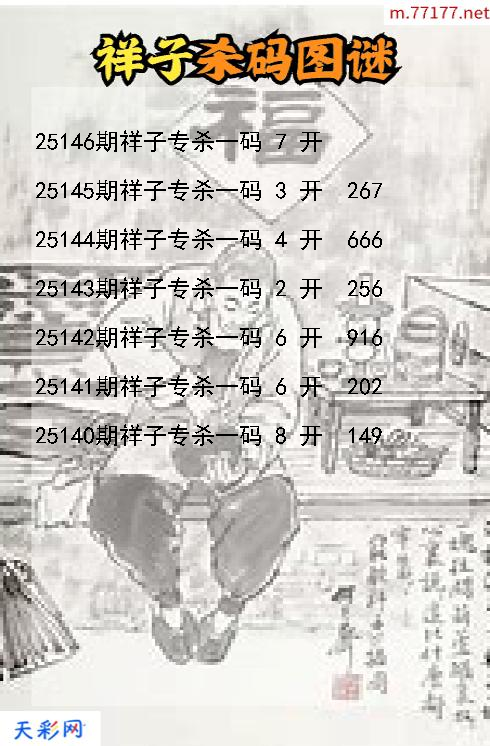 m.77177.net
祥子杀码图谜
福
25146期祥子专杀一码 7 开
25145期祥子专杀一码 3 开 267
25144期祥子专杀一码 4 开 666
25143期祥子专杀一码 2 开 256
25142期祥子专杀一码 6 开 916
25141期祥子专杀一码 6 开 202
25140期祥子专杀一码 8 开 149
天彩网